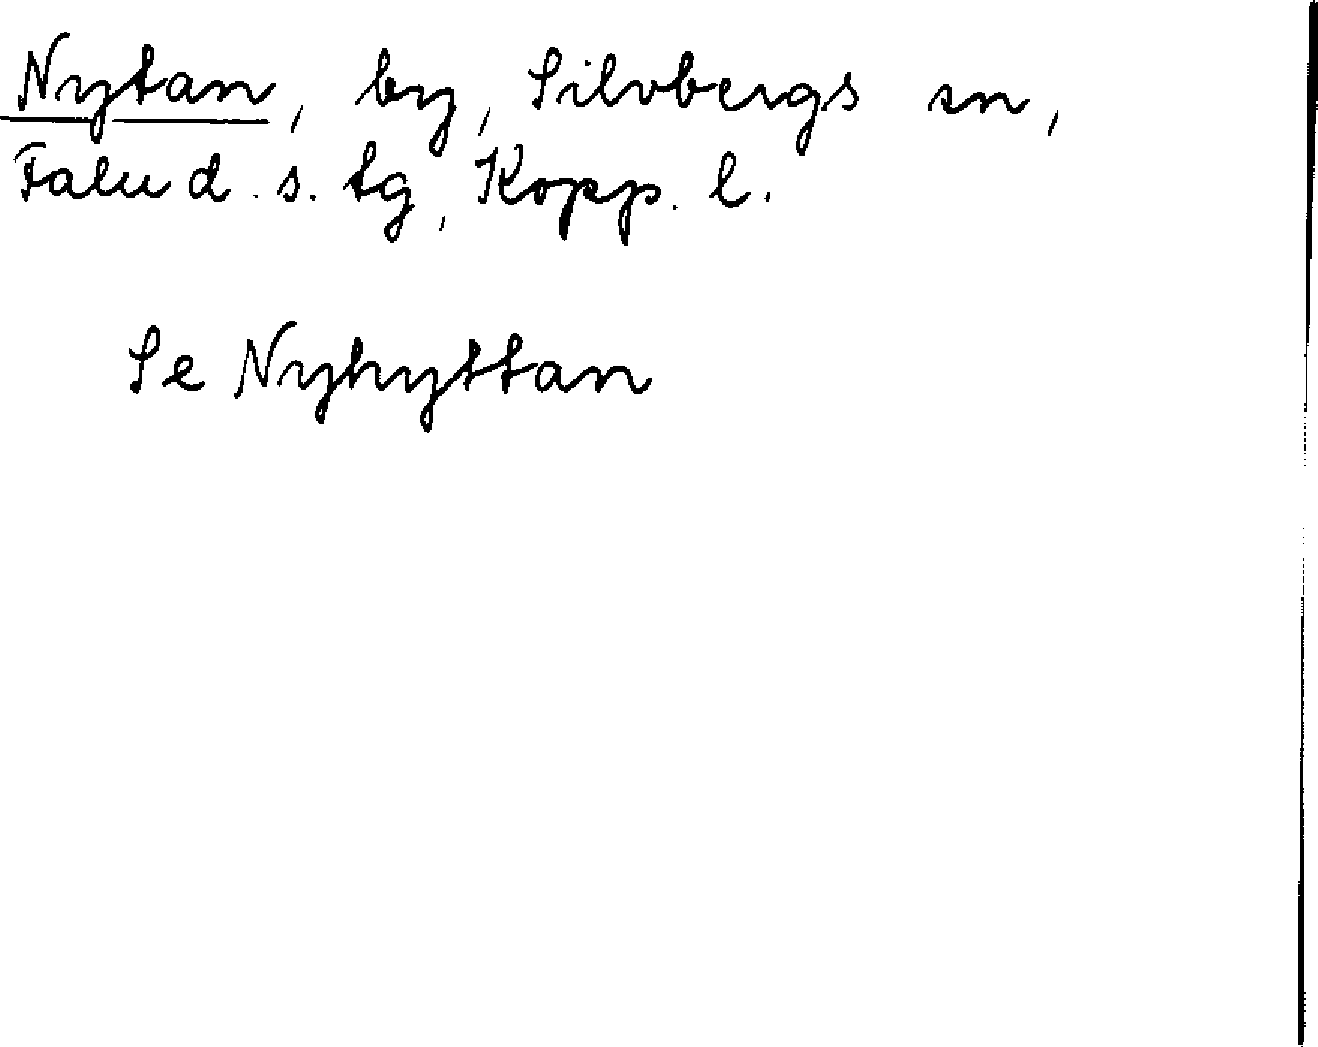 Nytan, by, Silvbergs sn,
Falu d. s. tg, Kopp. l.
Se Nyhyttan